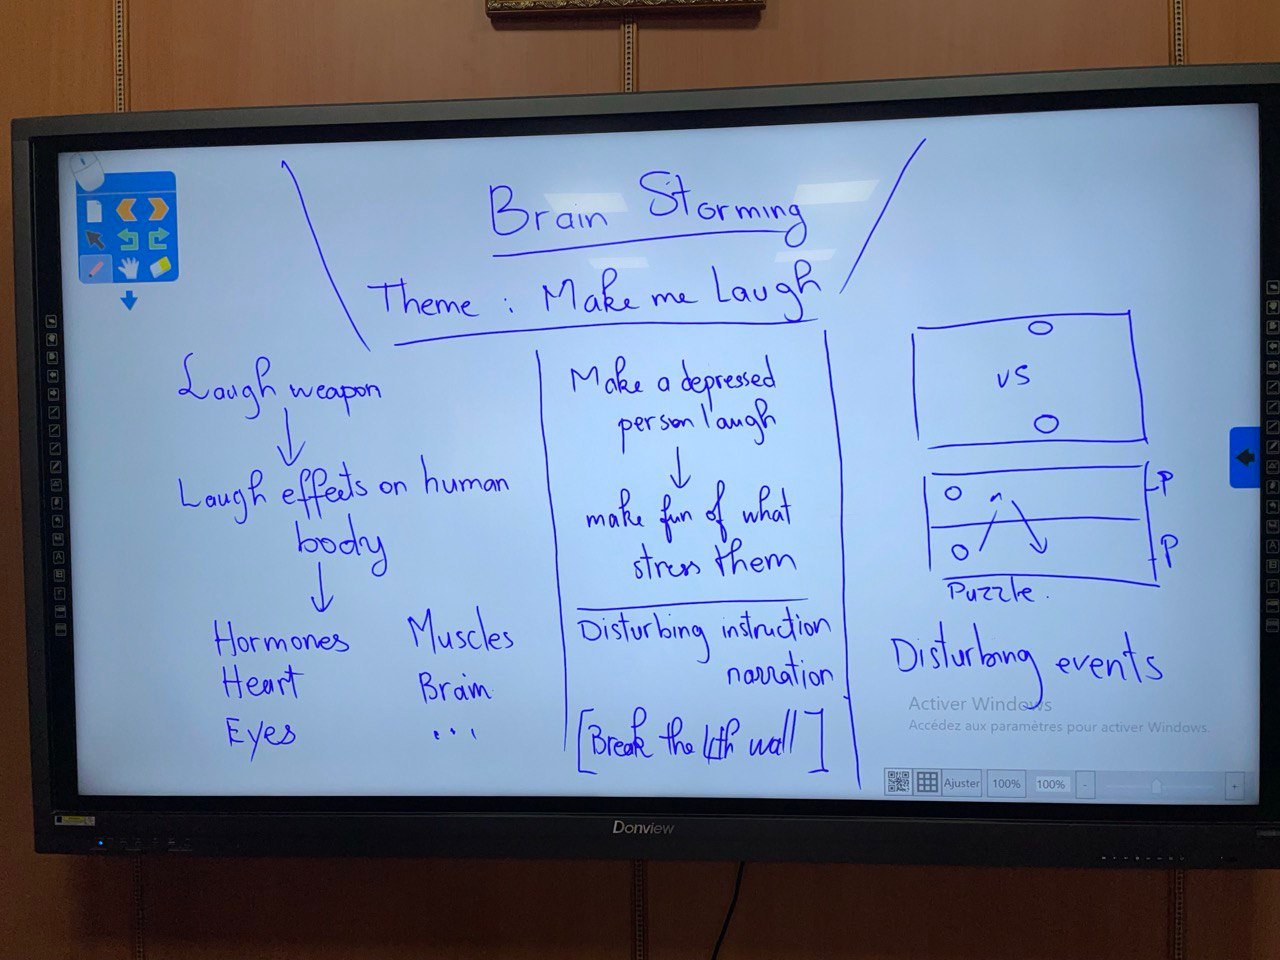 Brain Storming
Theme : Make me Laugh
Laugh weapon
Laugh effects on human
body
Hormones Muscles
Heart Brain
Eyes ...
Make a depressed
person laugh
make fun of what
stress them
Disturbing instruction
narration
[Break the 4th wall]
VS
P
P
Puzzle.
Disturbing events
Activer Windows
Accédez aux paramètres pour activer Windows.
Ajuster 100% 100% - +
Donview